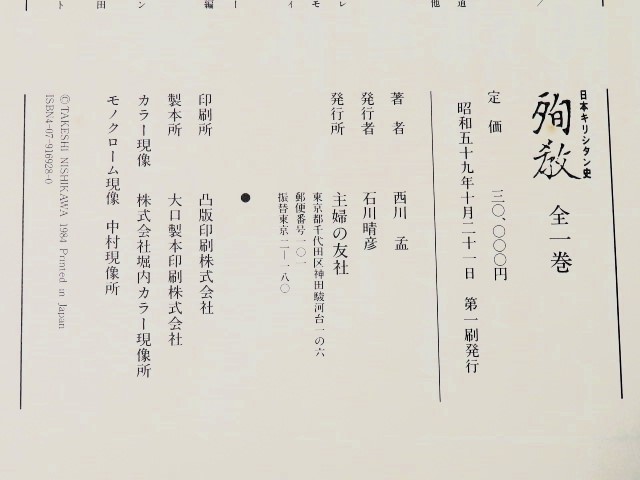 日本キリシタン史
殉教 全一巻
定価 三〇、〇〇〇円
昭和五十九年十月二十一日 第一刷発行
著者 西川 孟
発行者 石川晴彦
発行所 主婦の友社
東京都千代田区神田駿河台一の六
郵便番号一〇一
振替東京二―一八〇
●
印刷所 凸版印刷株式会社
製本所 大口製本印刷株式会社
カラー現像 株式会社堀内カラー現像所
モノクローム現像 中村現像所
©TAKESHI NISHIKAWA 1984 Printed in Japan
ISBN4-07-916928-0